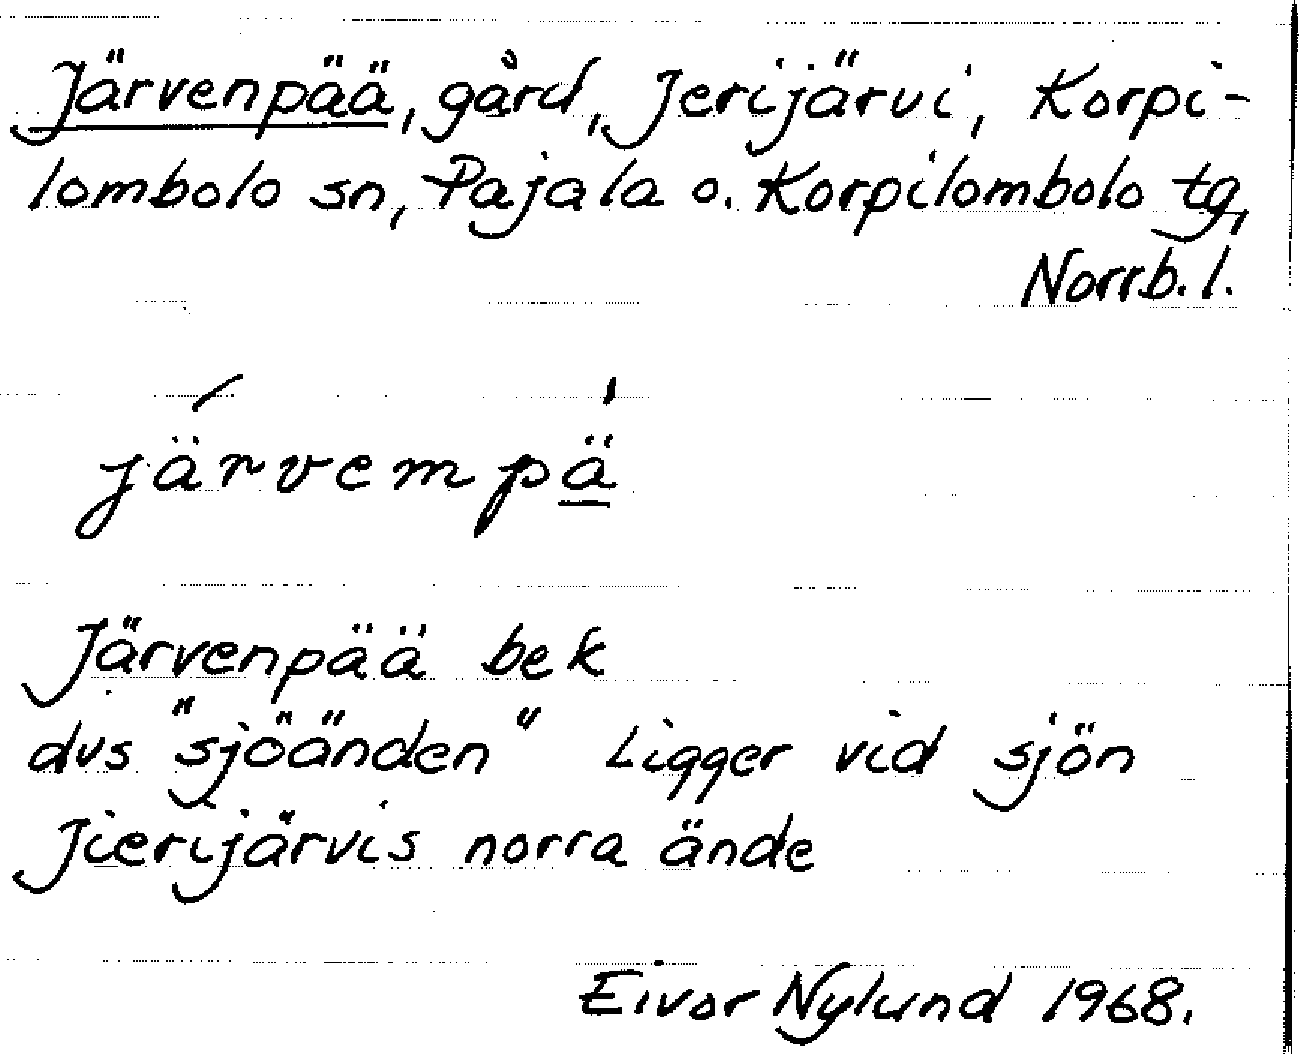 Järvenpää, gård, Jerijärvi, Korpi-
lombolo sn, Pajala o. Korpilombolo tg,
Norrb. l.
järvempä
Järvenpää bek
dvs "sjöänden" Ligger vid sjön
Jierijärvis norra ände
Eivor Nylund 1968.